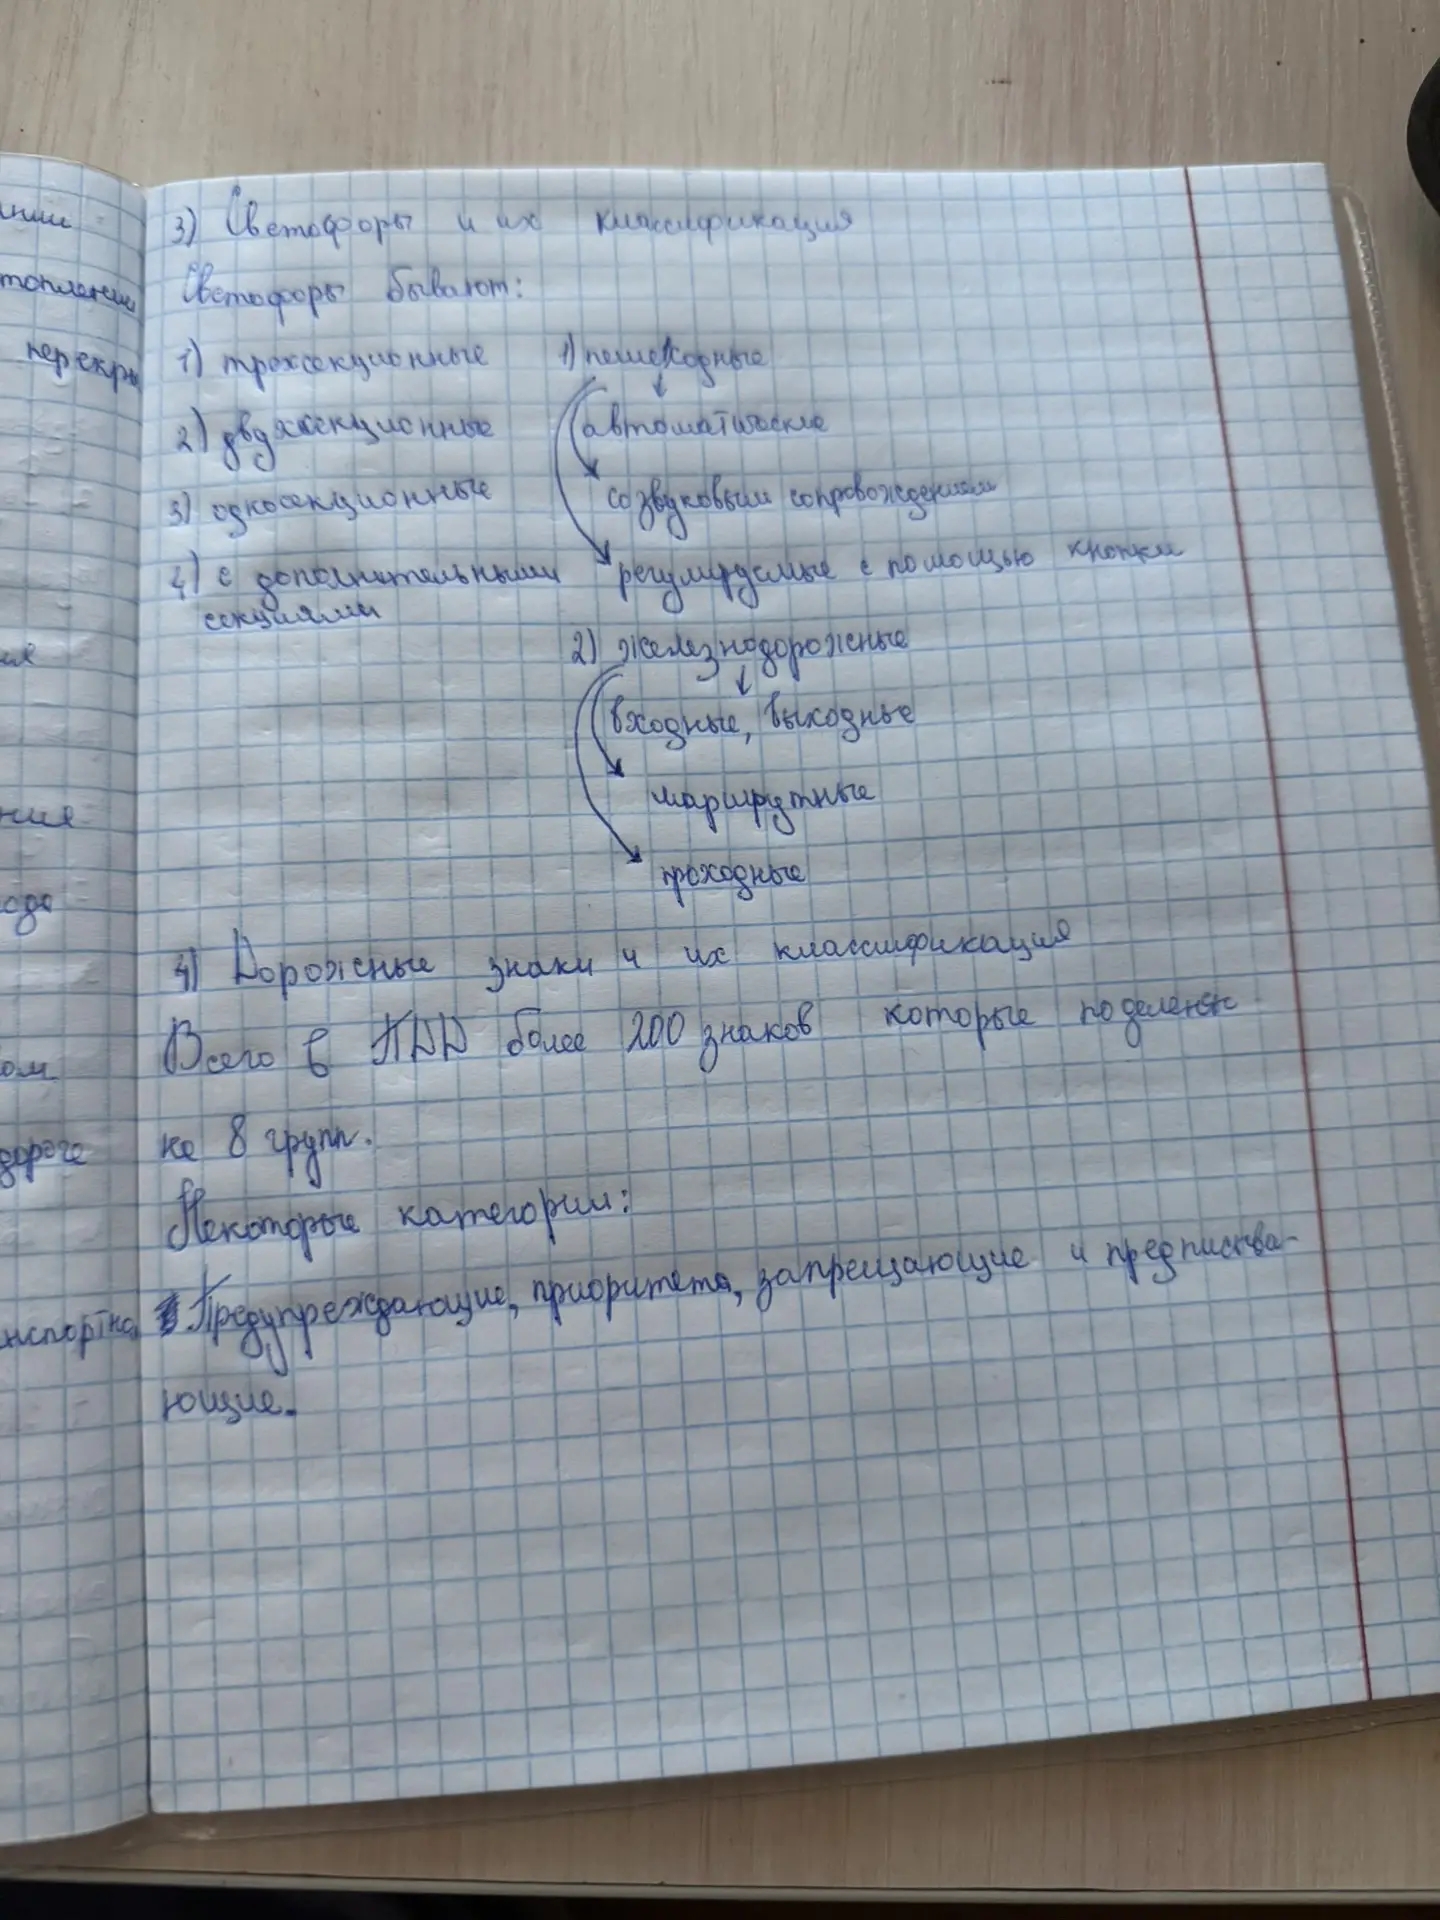 нии
топление
перекры
ия
ния
ода
ом
дороге
нспортна
3) Светофоры и их классификация
Светофоры бывают:
1) трёхсекционные
2) двухсекционные
3) односекционные
4) с дополнительными
секциями
1) пешеходные
автоматические
со звуковым сопровождением
регулируемые с помощью кнопки
2) железнодорожные
входные, выходные
маршрутные
проходные
4) Дорожные знаки и их классификация
Всего в ПДД более 200 знаков которые поделены
на 8 групп.
Некоторые категории:
Предупреждающие, приоритета, запрещающие и предписыва-
ющие.